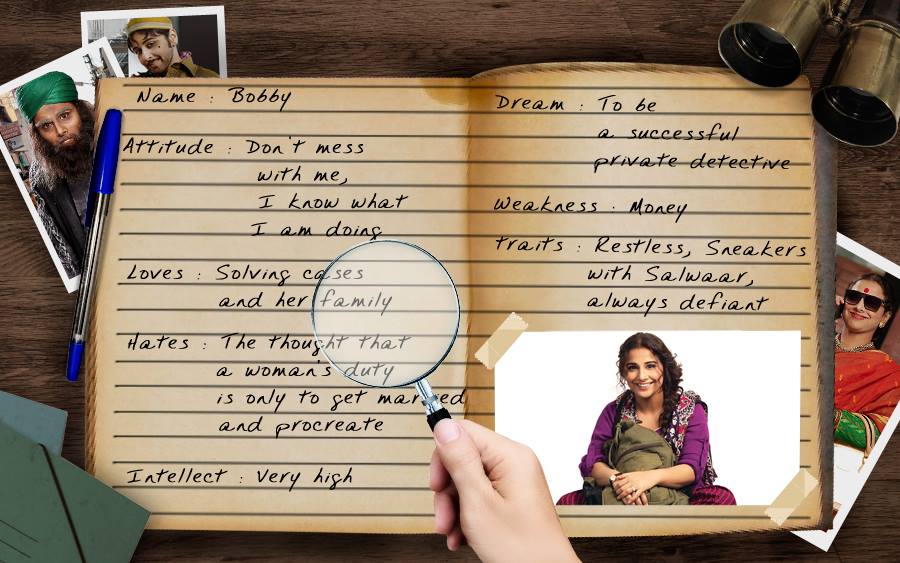 Name : Bobby
Attitude : Don't mess
with me,
I know what
I am doing
Loves : Solving cases
and her family
Hates : The thought that
a woman's duty
is only to get married
and procreate
Intellect : Very high
Dream : To be
a successful
private detective
Weakness : Money
Traits : Restless, Sneakers
with Salwaar,
always defiant